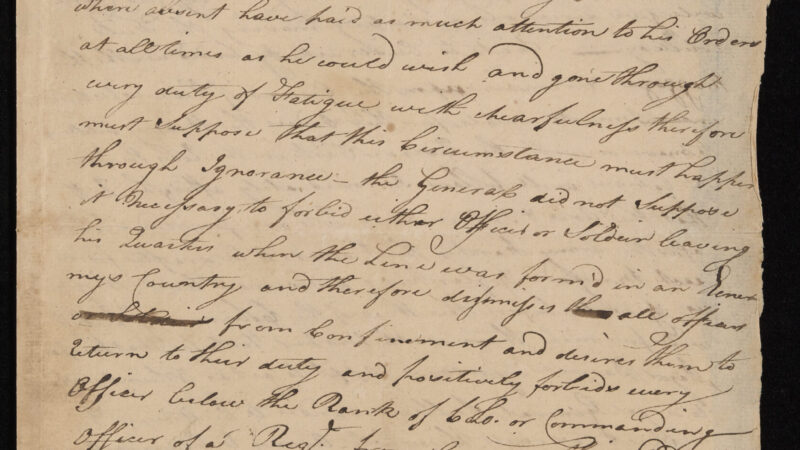 where absent have paid as much attention to his Orders
at all times as he could wish and gone through
every duty of Fatigue with chearfulness therefore
must Suppose that this Circumstance must happen
through Ignorance – the General did not Suppose
it Necessary to forbid either Officer or Soldier leaving
his Quarters when the Line was form'd in an Enem
mys Country and therefore dismisses all officers
from Confinement and desires them to
return to their duty and positively forbids every
Officer below the Rank of Colo. or Commanding
Officer of a Regt.